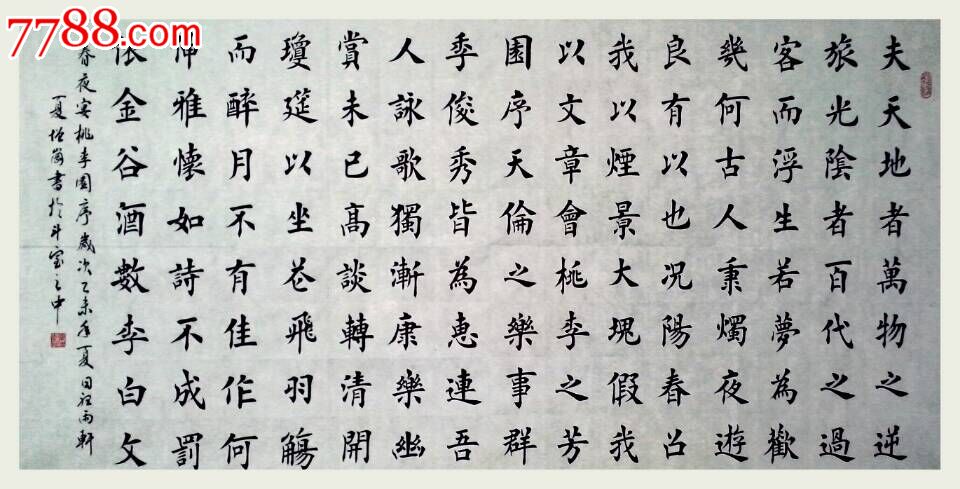 7788.com
夫天地者萬物之逆
旅光陰者百代之過
客而浮生若夢為歡
幾何古人秉燭夜遊
良有以也況陽春召
我以煙景大塊假我
以文章會桃李之芳
園序天倫之樂事群
季俊秀皆為惠連吾
人詠歌獨漸康樂幽
賞未已高談轉清開
瓊筵以坐花飛羽觴
而醉月不有佳作何
伸雅懷如詩不成罰
依金谷酒數李白文
春夜宴桃李園序歲次乙未年夏日雨軒
夏書於斗室之中